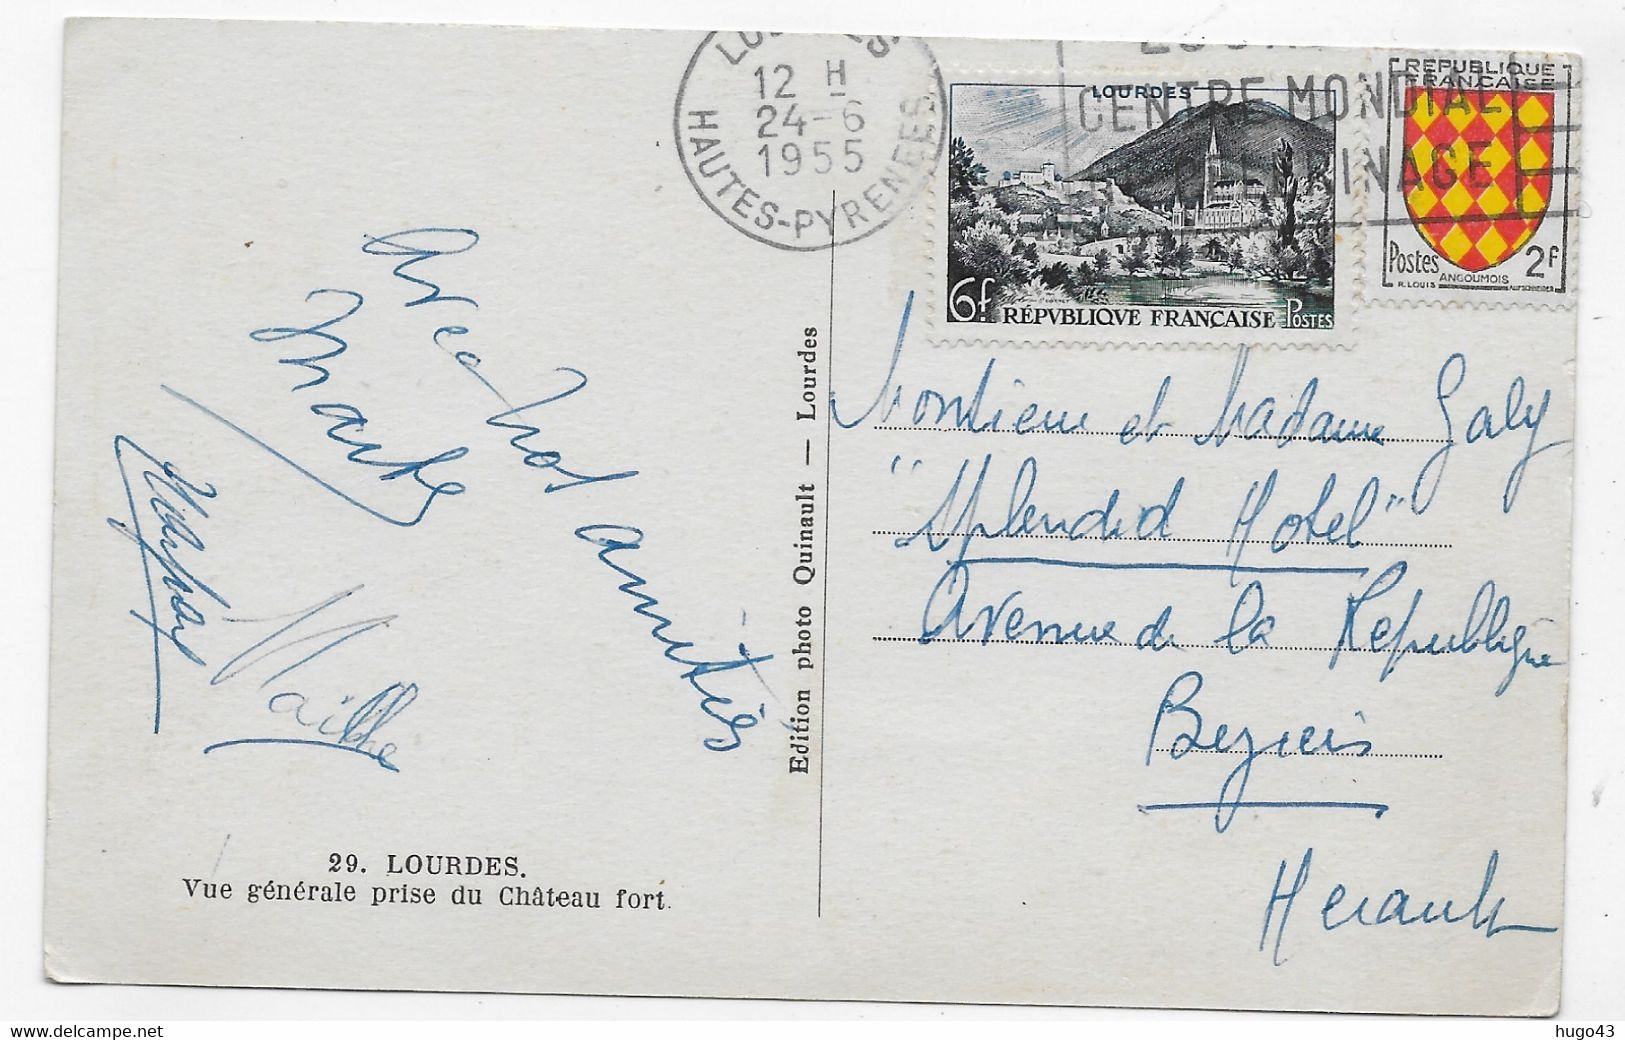 LOURDES
12 H
24-6
1955
HAUTES-PYRENEES
CENTRE MONDIAL
LOURDES
6f RÉPVBLIQVE FRANÇAISE POSTES
REPUBLIQUE
FRANCAISE
Postes 2F
ANGOUMOIS
R. LOUIS AUFSCHNEIDER
Avec nos
amitiés
Monsieur et Madame Galy
"Splendid Hotel"
Avenue de la République
Beziers
Herault
Edition photo Quinault — Lourdes
29. LOURDES.
Vue générale prise du Château fort.
hugo43